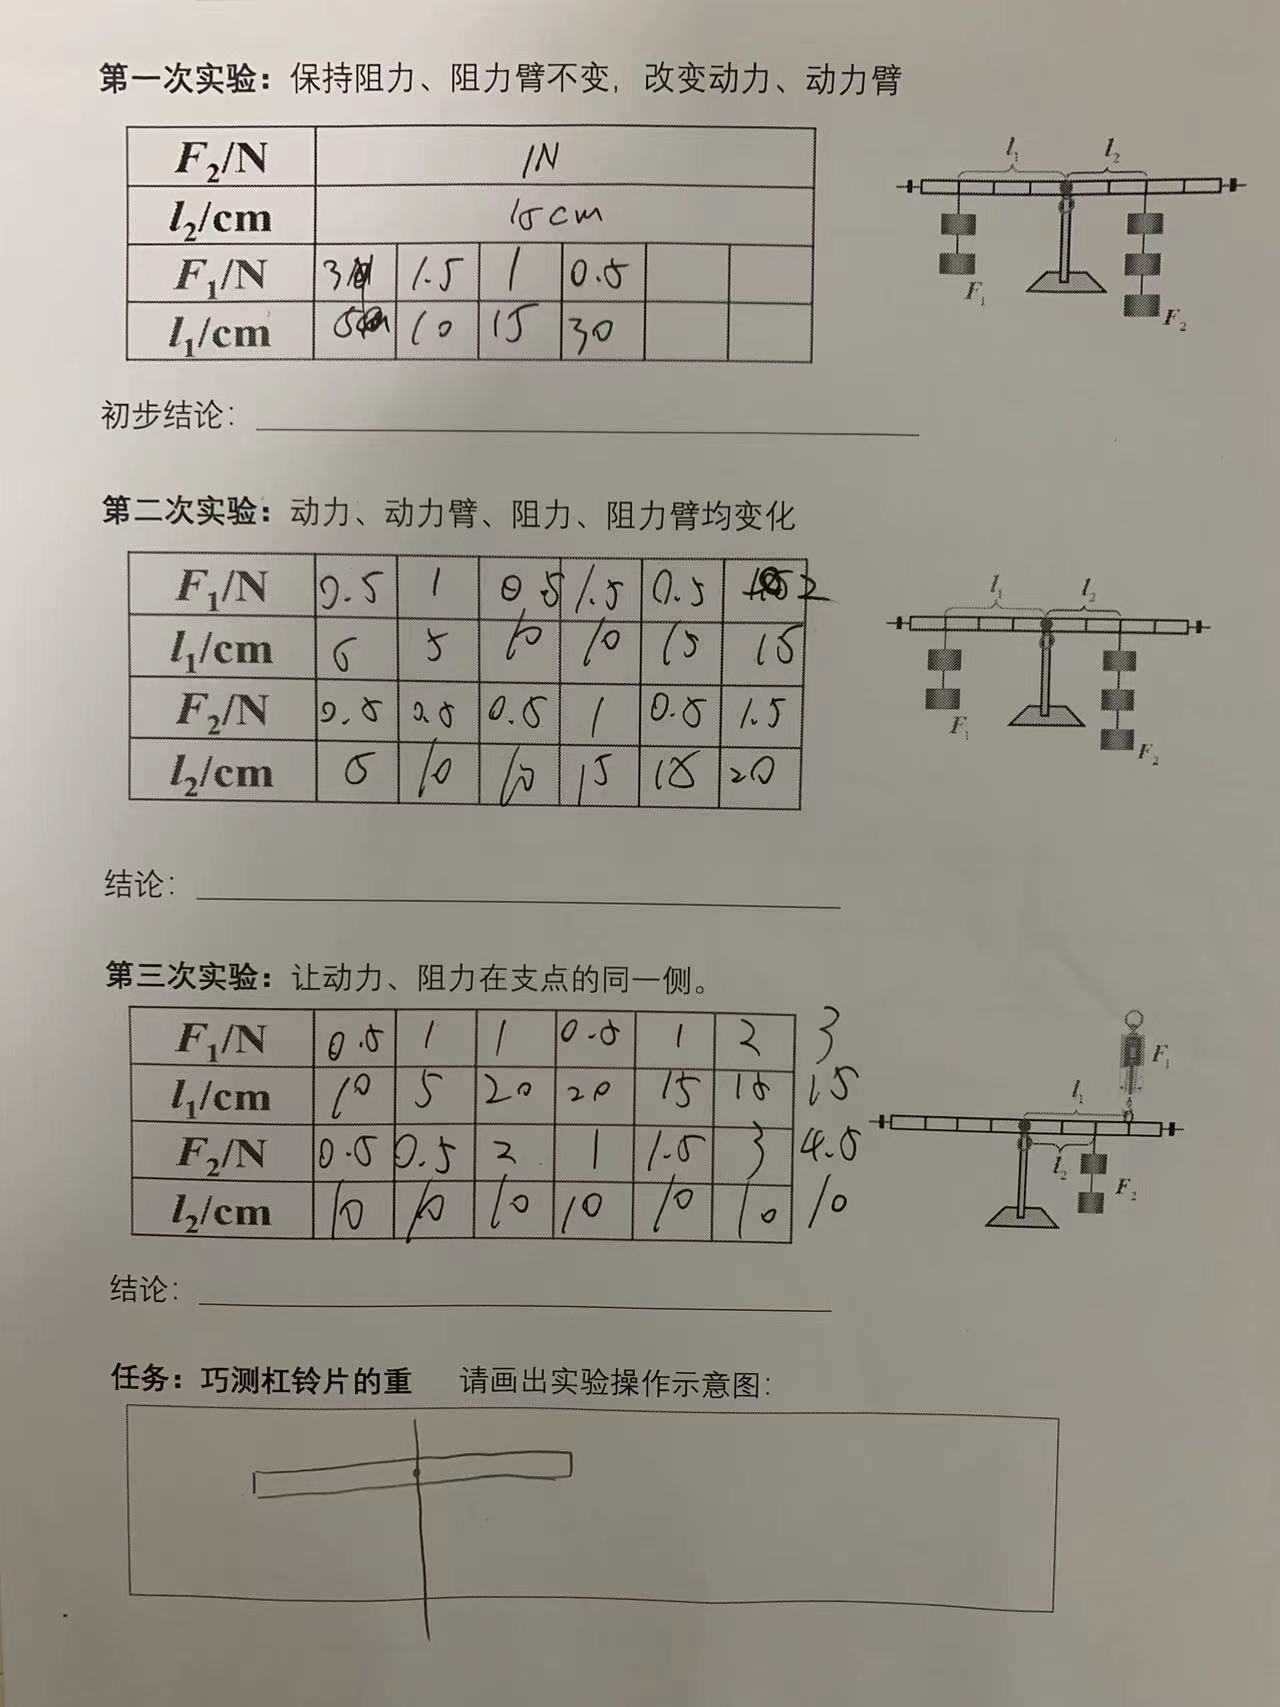 第一次实验：保持阻力、阻力臂不变，改变动力、动力臂
F2/N 1N
l2/cm 15cm
F1/N 3 1.5 1 0.5
l1/cm 5 10 15 30
l1 l2
F1 F2
初步结论：
第二次实验：动力、动力臂、阻力、阻力臂均变化
F1/N 0.5 1 0.5 1.5 0.5 2
l1/cm 5 5 10 10 15 15
F2/N 0.5 0.5 0.5 1 0.5 1.5
l2/cm 5 10 10 15 15 20
l1 l2
F1 F2
结论：
第三次实验：让动力、阻力在支点的同一侧。
F1/N 0.5 1 1 0.5 1 2 3
l1/cm 10 5 20 20 15 15 15
F2/N 0.5 0.5 2 1 1.5 3 4.5
l2/cm 10 10 10 10 10 10 10
F1
l1
l2
F2
结论：
任务：巧测杠铃片的重 请画出实验操作示意图：